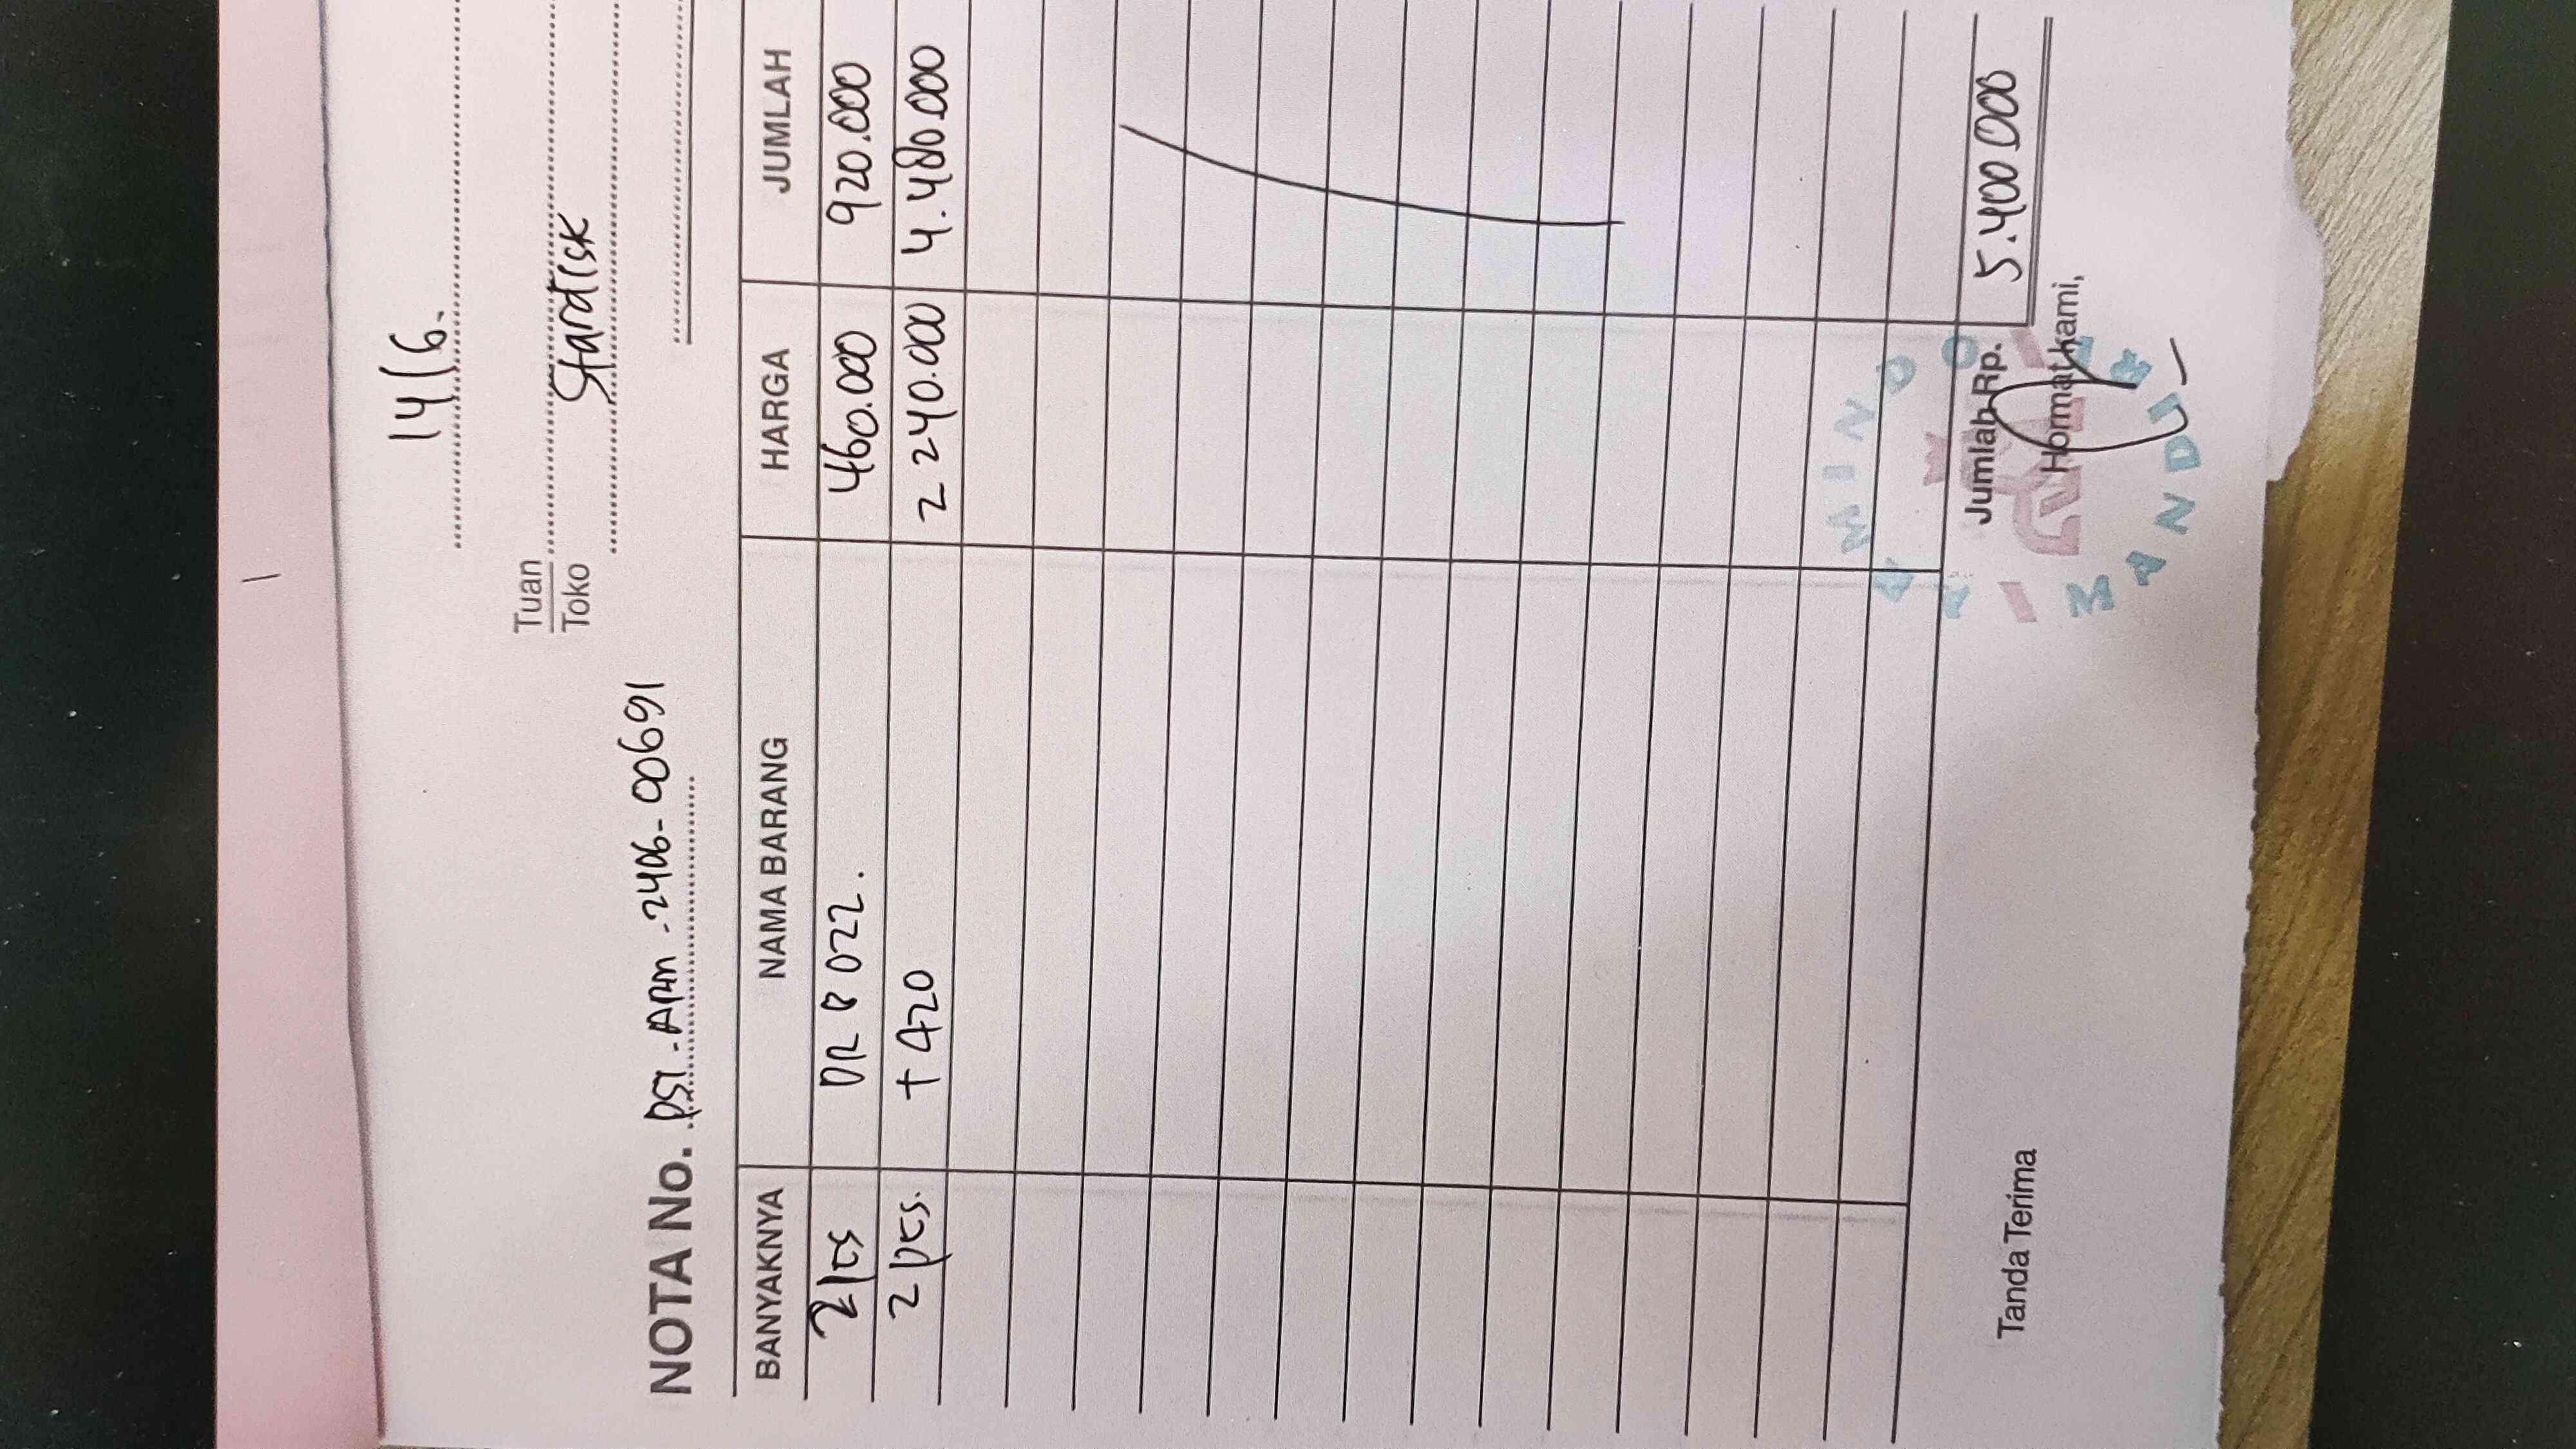 14/6.
Tuan
Toko
Stardisk
NOTA No. PSI-APM-2406-00691
BANYAKNYA NAMA BARANG HARGA JUMLAH
2 pcs DR B 022. 460.000 920.000
2 pcs. T 420 2 240.000 4.480.000
Jumlah Rp. 5.400.000
Tanda Terima Hormat kami,
MANDU